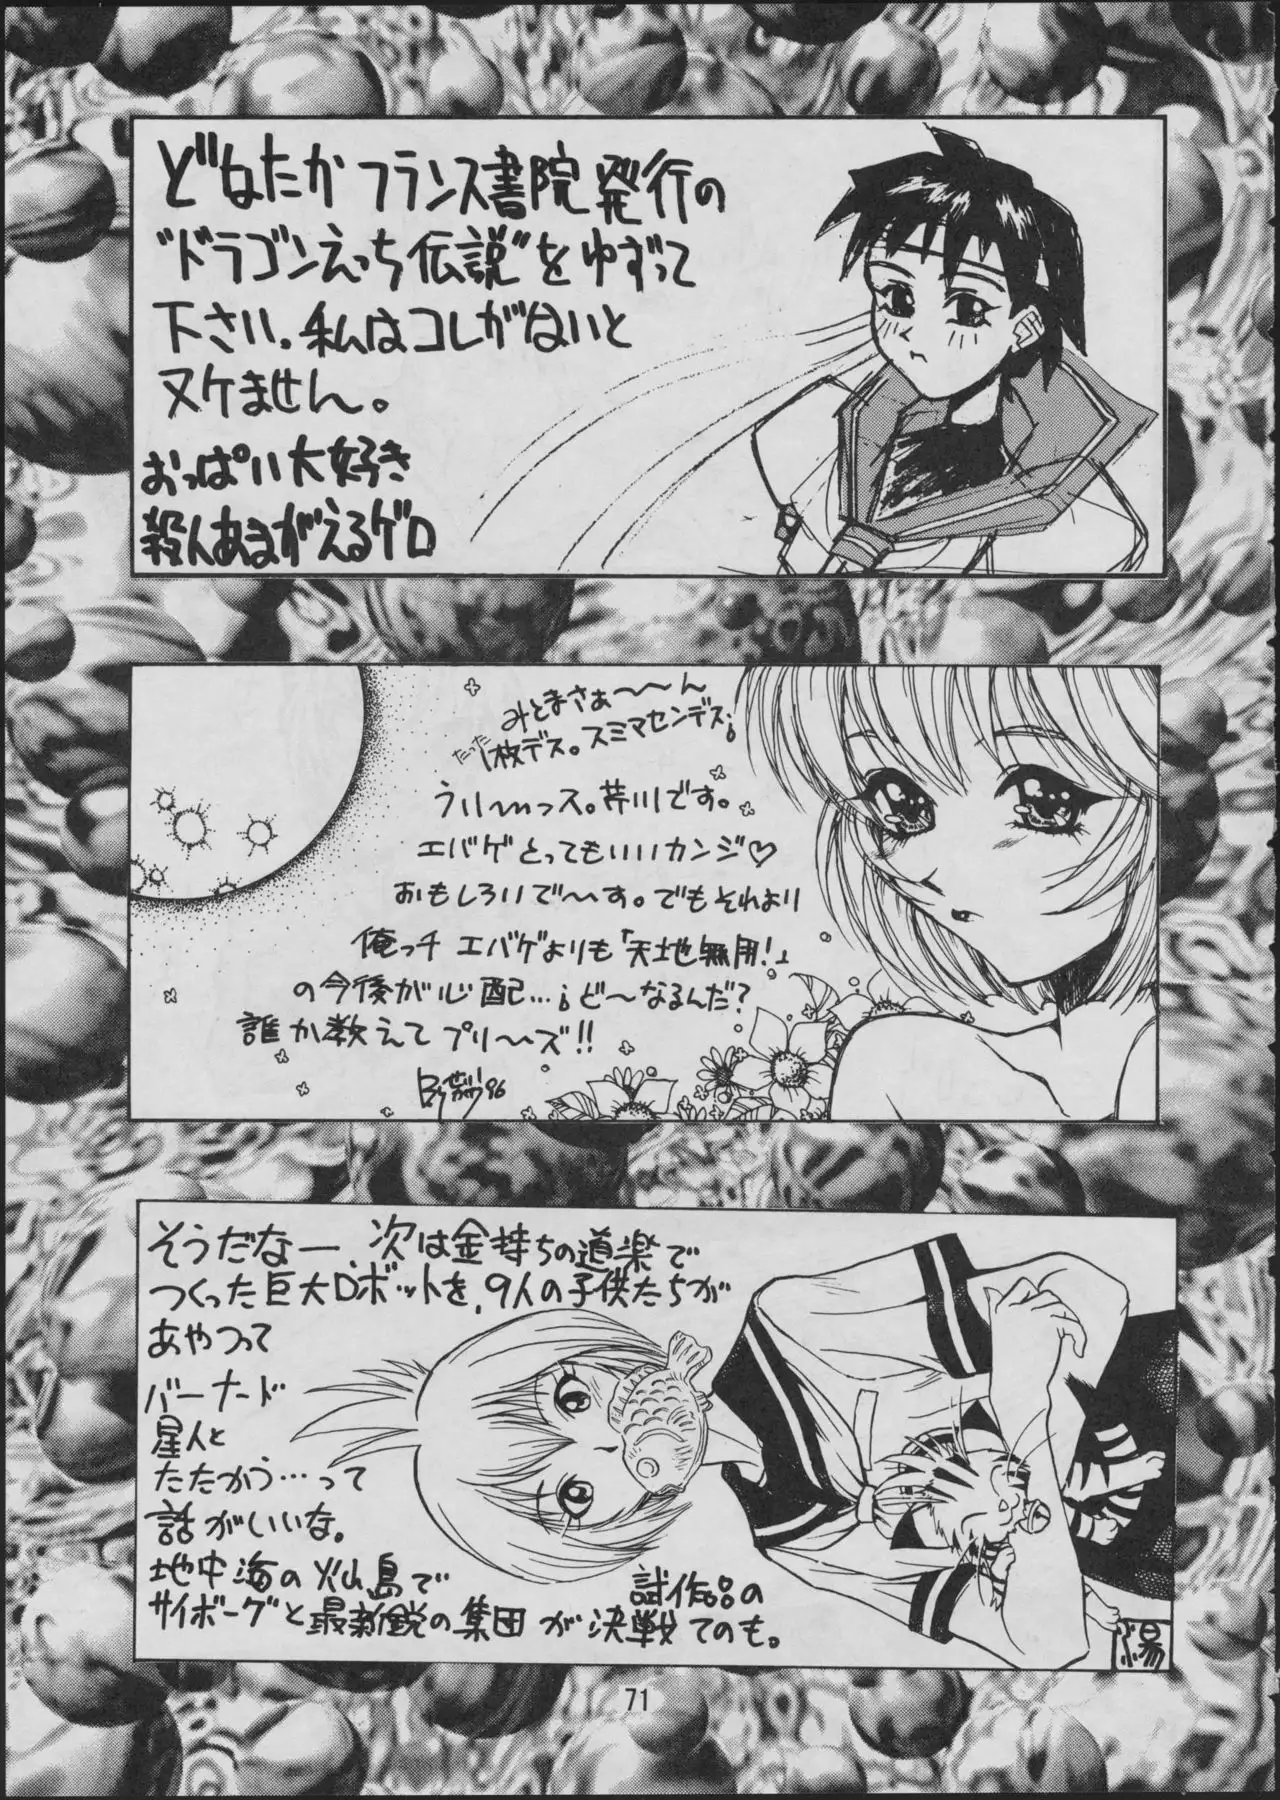 どなたかフランス書院発行の
"ドラゴンえっち伝説"をゆずって
下さい。私はコレがないと
ヌケません。
おっぱい大好き
殺人あまがえるゲロ
みとまさぁ〜〜ん
たった1枚デス。スミマセンデス;
うい〜〜っス。芹川です。
エバゲとってもいいカンジ♡
おもしろいで〜す。でもそれより
俺っチ エバゲよりも「天地無用!」
の今後が心配…;ど〜なるんだ?
誰か教えてプリ〜〜ズ!!
96
そうだなー、次は金持ちの道楽で
つくった巨大ロボットを、9人の子供たちが
あやつって
バーナード
星人と
たたかう…って
話がいいな。
地中海の火山島で
サイボーグと最新鋭の試作品の集団が決戦てのも。
71